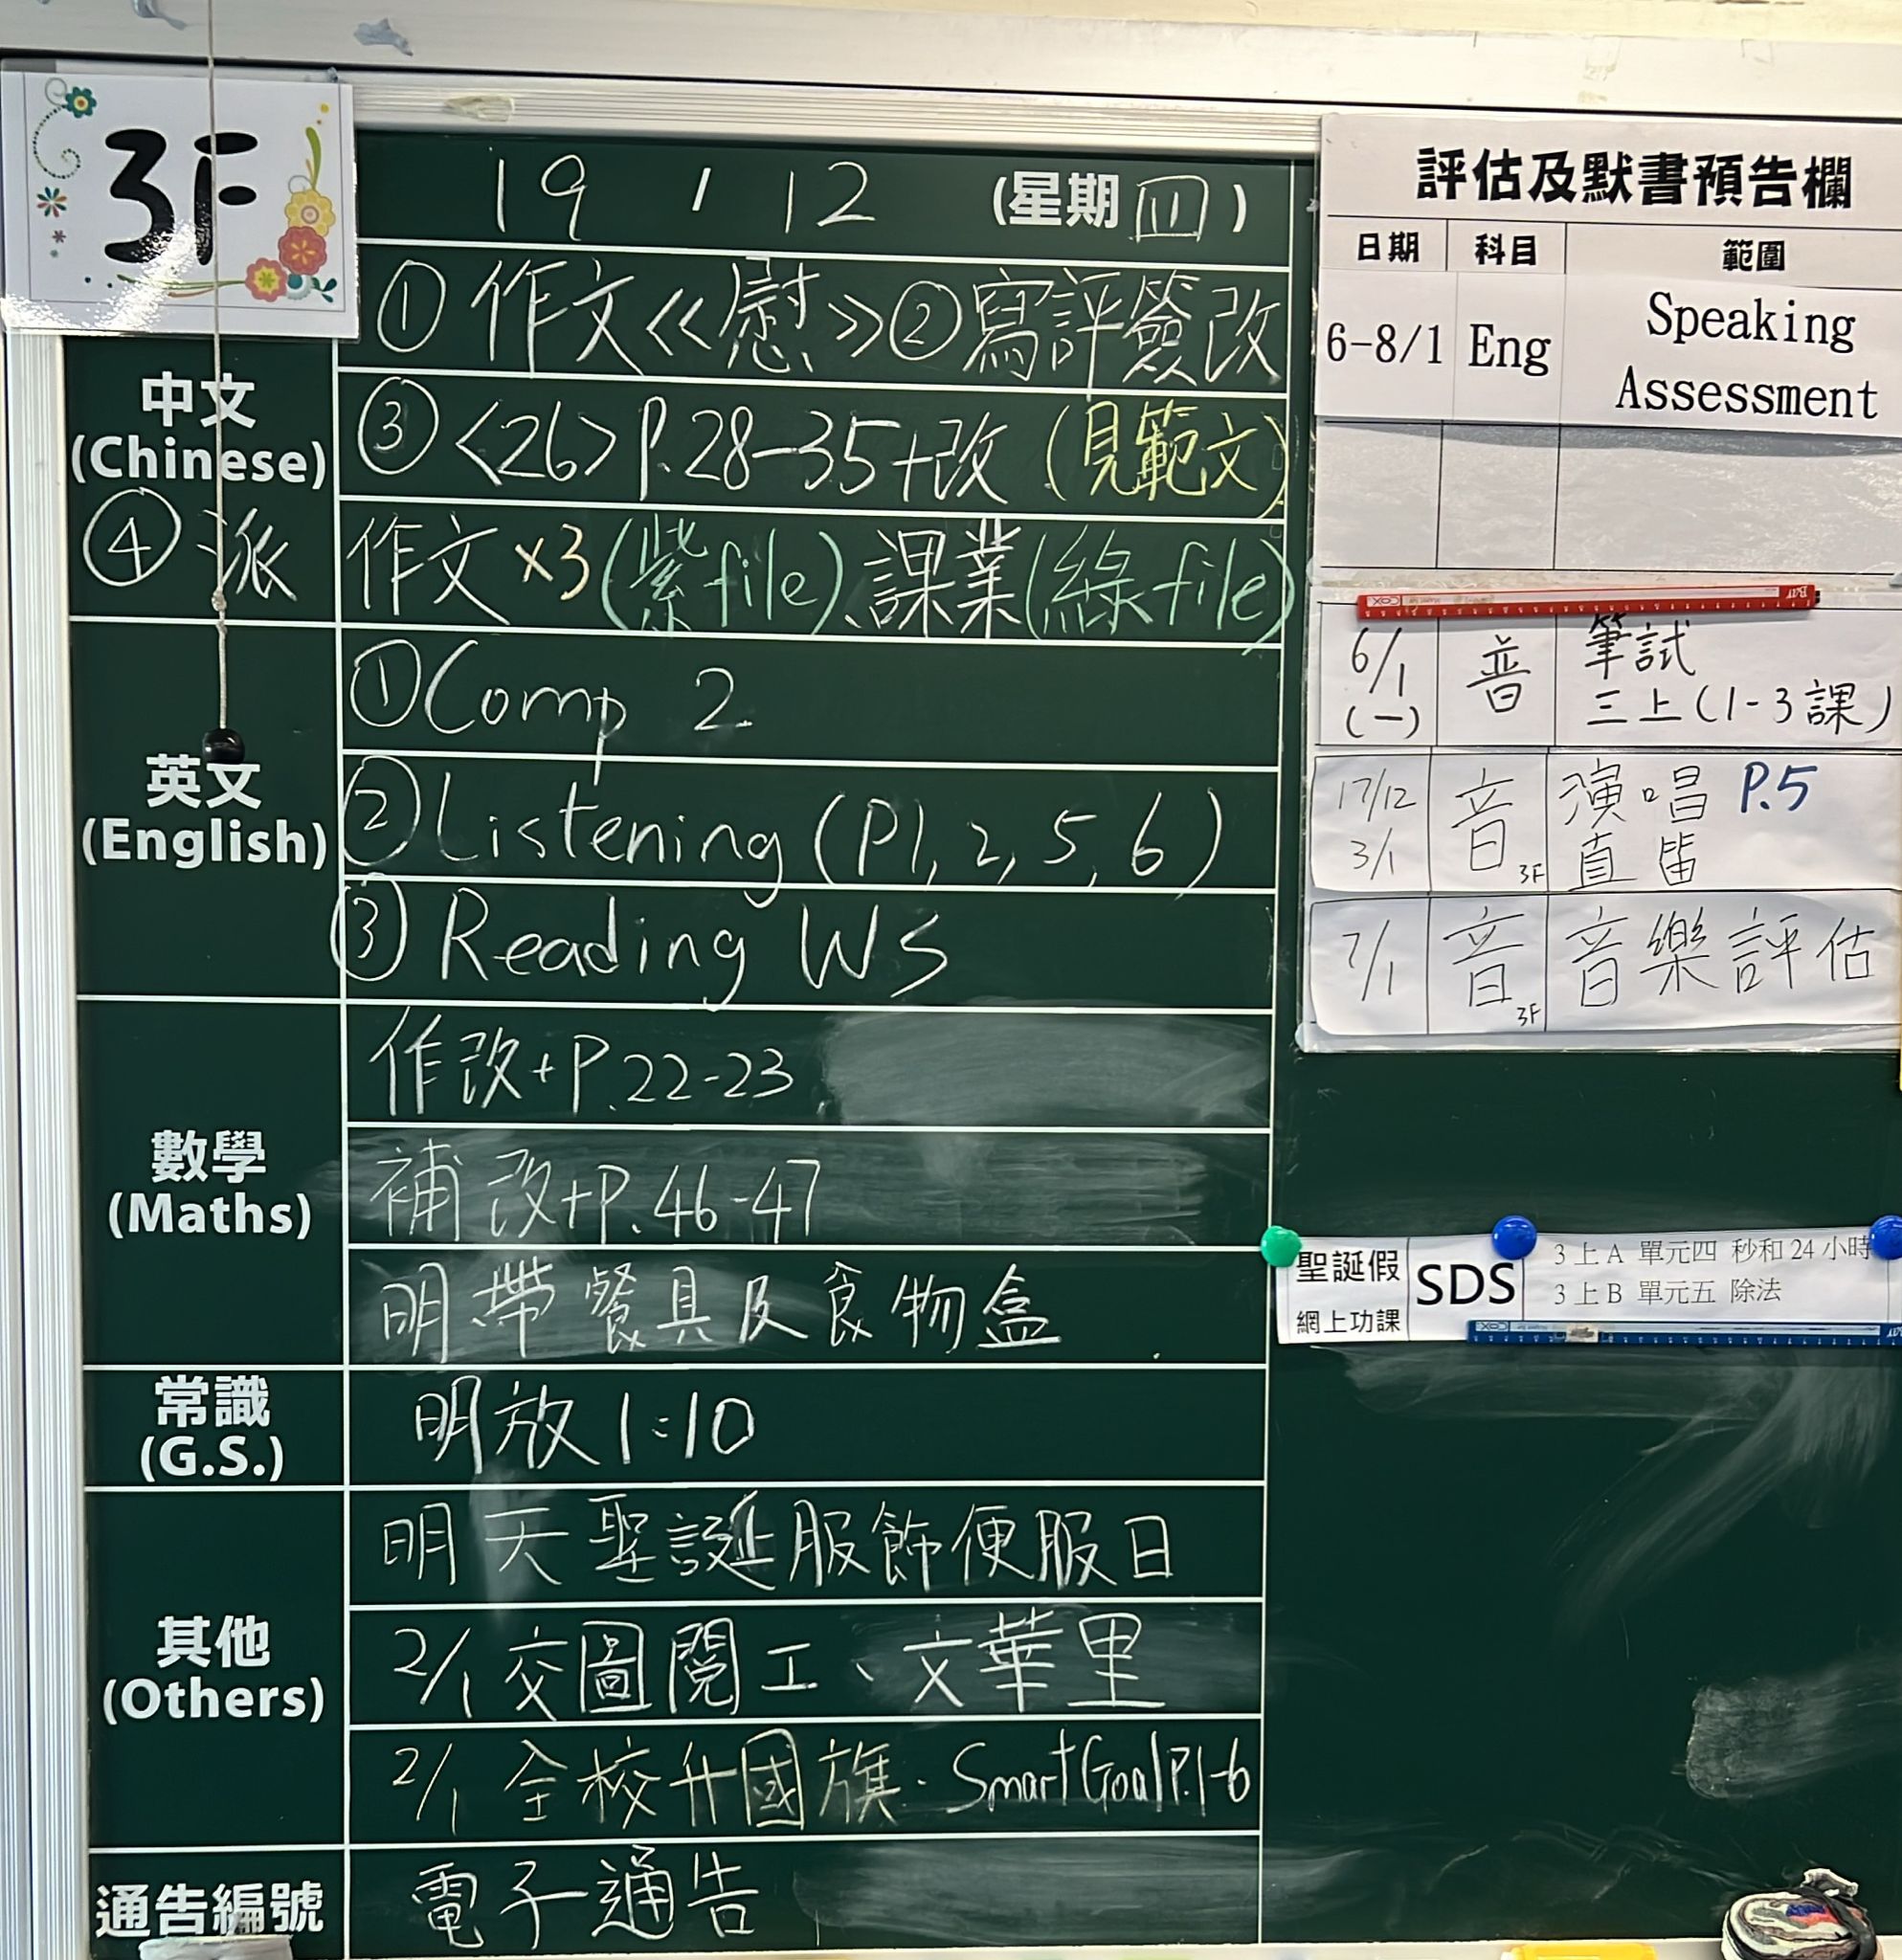 3F
19 / 12 (星期四)
① 作文《慰》② 寫評簽改
中文
(Chinese)
③ <26> P.28-35+改 (見範文)
④ 派 作文 x3 (紫file)、課業(綠file)
英文
(English)
① Comp 2
② Listening (P1, 2, 5, 6)
③ Reading WS
數學
(Maths)
作改+P.22-23
補改+P.46-47
明帶餐具及食物盒
常識
(G.S.)
明放 1:10
其他
(Others)
明天聖誕服飾便服日
2/1 交圖閱工、文華里
2/1 全校升國旗. Smart Goal P.1-6
通告編號
電子通告
評估及默書預告欄
日期 科目 範圍
6-8/1 Eng Speaking
Assessment
6/1 (一) 普 筆試
三上(1-3課)
17/12 音 演唱 P.5
3/1 3F 直笛
7/1 音 3F 音樂評估
聖誕假
網上功課
SDS
3上A 單元四 秒和24小時
3上B 單元五 除法